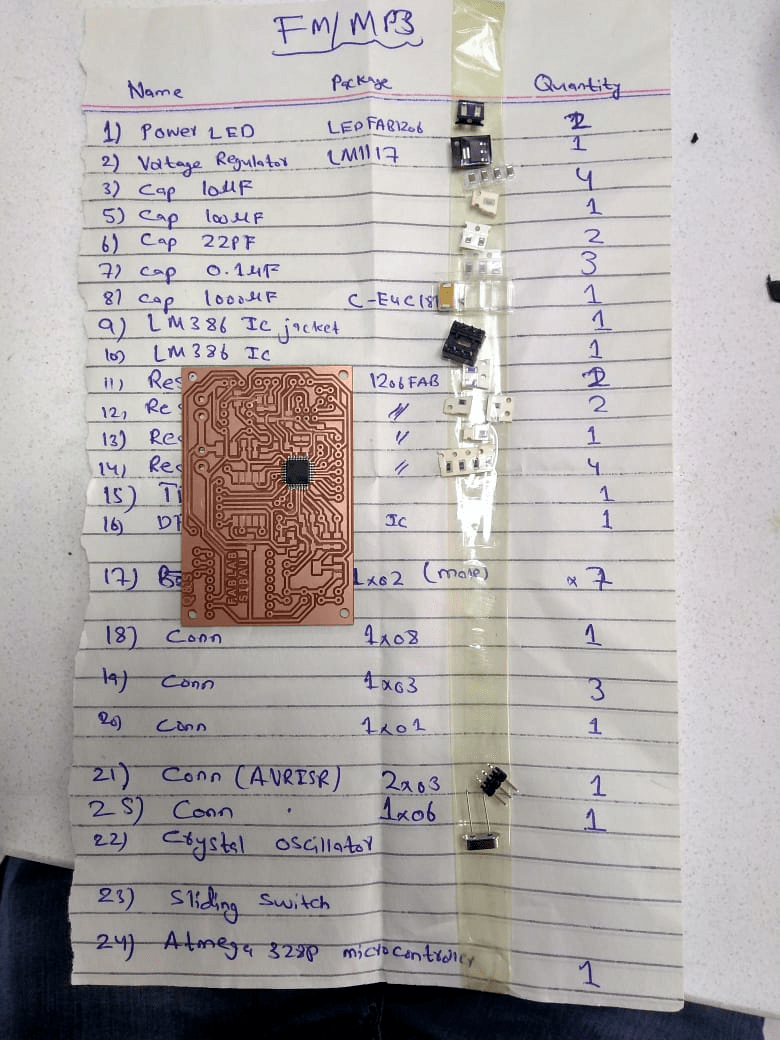 FM/MP3
Name Package Quantity
1) Power LED LEDFAB1206
2) Voltage Regulator LM1117 1
3) Cap 10µF 4
5) Cap 100µF 1
6) Cap 22PF 2
7) cap 0.1µF 3
8) cap 1000µF C-EUC181 1
9) LM386 IC jacket 1
10) LM386 IC 1
11, Res 1206FAB
12, Re 〃 2
13) Re 〃 1
14, Re 〃 4
15) T 1
16) DF IC 1
17) 1x02 (male) x 7
18) Conn 1x08 1
19) Conn 1x03 3
20) Conn 1x01 1
21) Conn (AVRISR) 2x03 1
25) Conn . 1x06 1
22) Crystal oscillator
23) Sliding Switch
24) Atmega 328P microcontroller 1
FABLAB
SIBAU